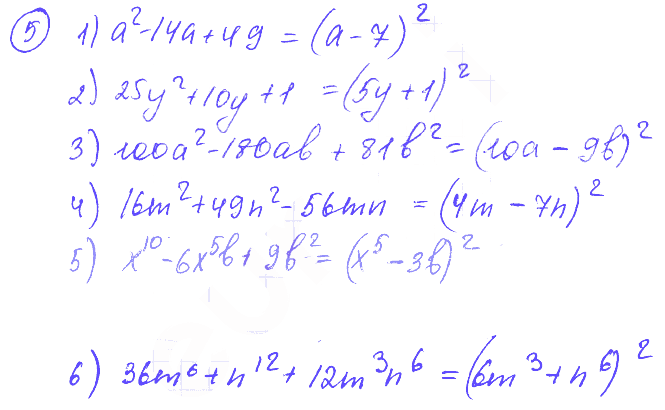 ⑤ 1) a² - 14a + 49 = (a - 7)²
2) 25y² + 10y + 1 = (5y + 1)²
3) 100a² - 180ab + 81b² = (10a - 9b)²
4) 16m² + 49n² - 56mn = (4m - 7n)²
5) x¹⁰ - 6x⁵b + 9b² = (x⁵ - 3b)²
6) 36m⁶ + n¹² + 12m³n⁶ = (6m³ + n⁶)²